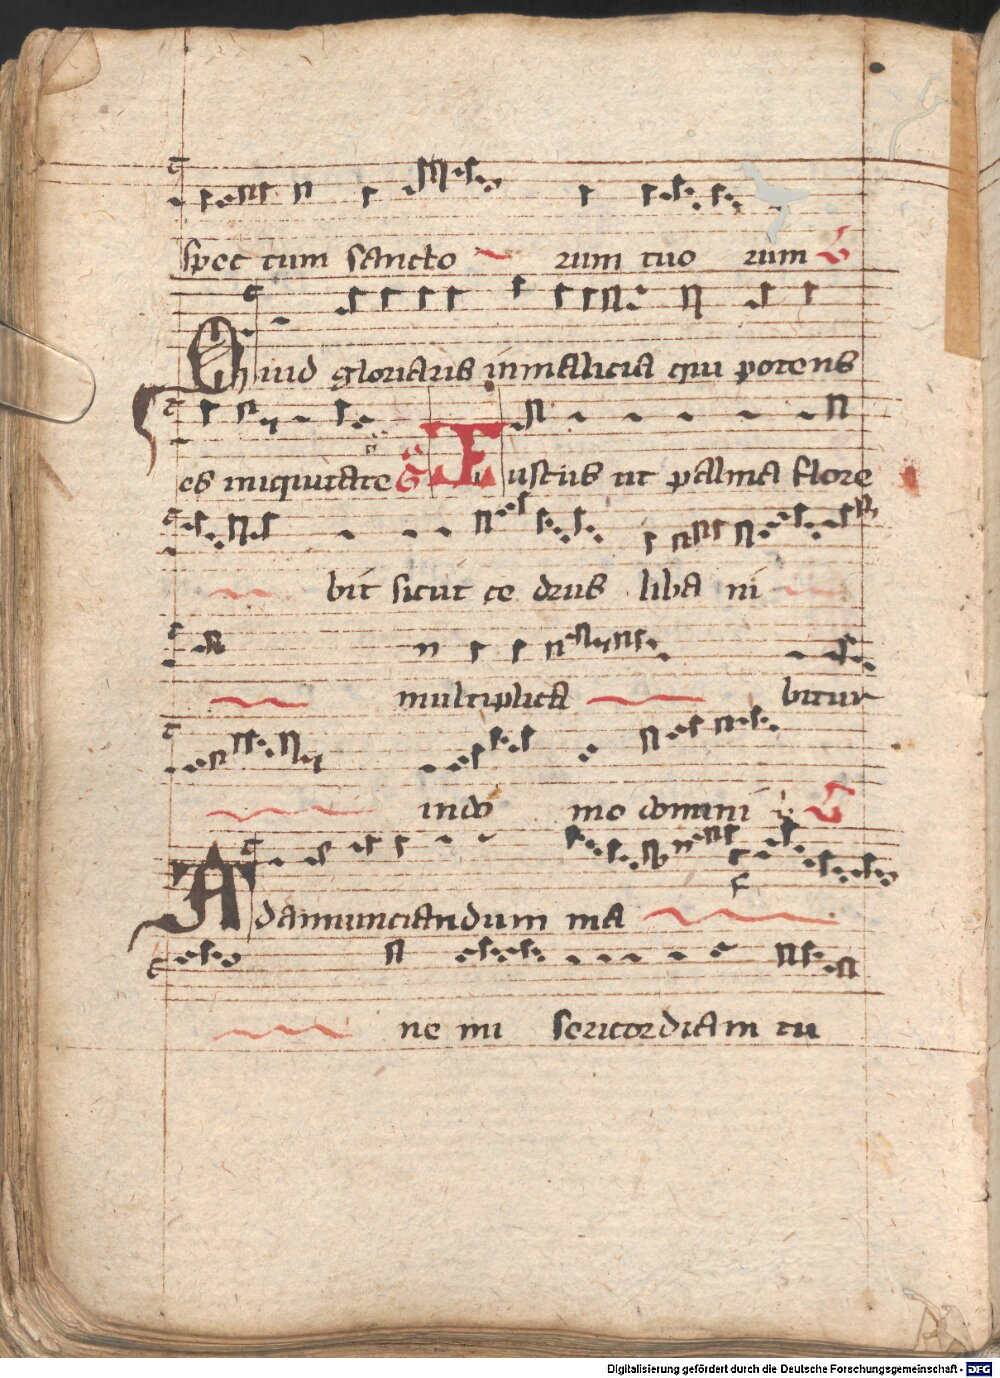 spec tum sancto rum tuo rum
Quid gloriaris in malicia qui potens
es iniquitate Iustus ut palma flore
bit sicut ce drus liba ni
multiplica bitur
in do mo domini
Ad annunciandum ma
ne mi sericordiam tu
Digitalisierung gefördert durch die Deutsche Forschungsgemeinschaft - DFG